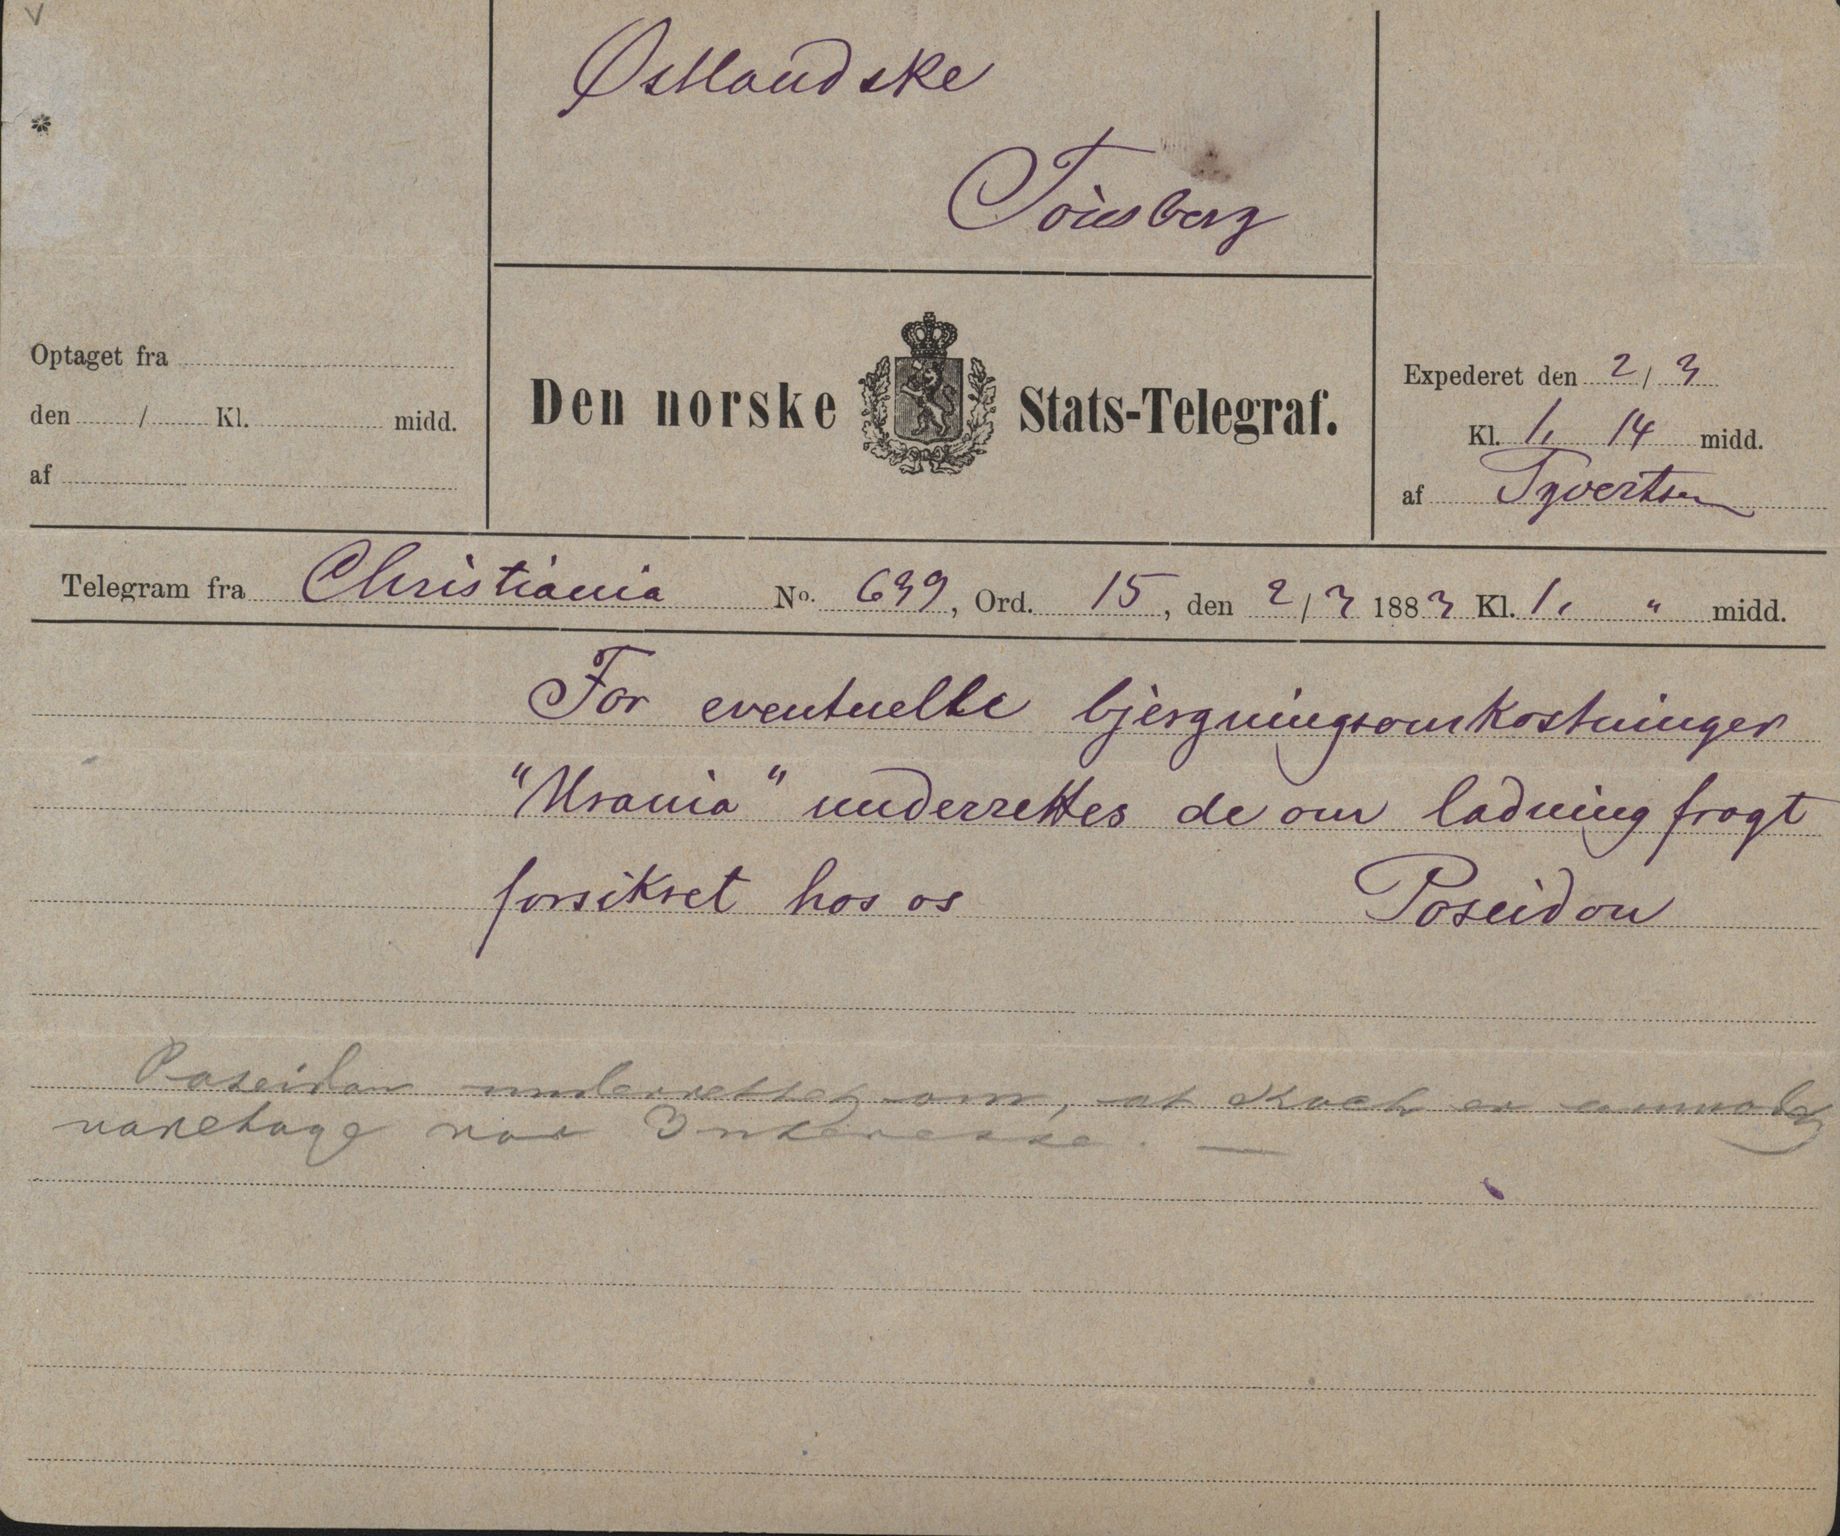 Østlandske
Tönsberg
Optaget fra
den / Kl. midd.
af
Den norske Stats-Telegraf.
Expederet den 2/3
Kl. 1, 14 midd.
af Syvertsen
Telegram fra Christiania No. 639, Ord. 15, den 2/3 1883 Kl. 1, " midd.
For eventuelle bjergningsomkostninger
"Urania" underrettes de om ladning fragt
forsikret hos os Poseidon
Poseidon underrettet om, at Koch er anmodet
varetage vor Interesse. —